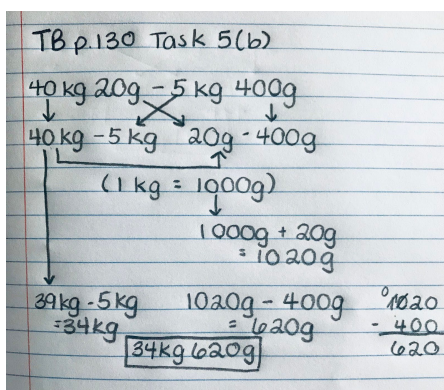 TB p.130 Task 5(b)
40 kg 20g - 5 kg 400g
40 kg - 5 kg 20g - 400g
(1 kg = 1000g)
1000g + 20g
= 1020g
39kg - 5kg 1020g - 400g 0 1020
= 34kg = 620g - 400
34kg 620g 620